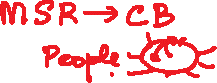 MSR → CB
People